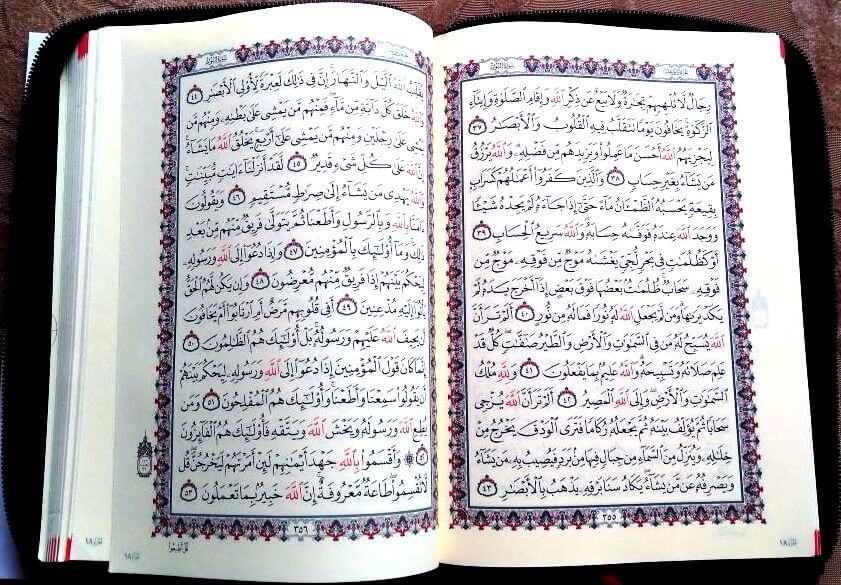 رِجَالٌ لَّا تُلْهِيهِمْ تِجَٰرَةٌ وَلَا بَيْعٌ عَن ذِكْرِ ٱللَّهِ وَإِقَامِ ٱلصَّلَوٰةِ وَإِيتَآءِ
ٱلزَّكَوٰةِ يَخَافُونَ يَوْمًا تَتَقَلَّبُ فِيهِ ٱلْقُلُوبُ وَٱلْأَبْصَٰرُ ٣٧
لِيَجْزِيَهُمُ ٱللَّهُ أَحْسَنَ مَا عَمِلُوا۟ وَيَزِيدَهُم مِّن فَضْلِهِۦ وَٱللَّهُ يَرْزُقُ
مَن يَشَآءُ بِغَيْرِ حِسَابٍ ٣٨ وَٱلَّذِينَ كَفَرُوٓا۟ أَعْمَٰلُهُمْ كَسَرَابٍۭ
بِقِيعَةٍ يَحْسَبُهُ ٱلظَّمْـَٔانُ مَآءً حَتَّىٰٓ إِذَا جَآءَهُۥ لَمْ يَجِدْهُ شَيْـًٔا
وَوَجَدَ ٱللَّهَ عِندَهُۥ فَوَفَّىٰهُ حِسَابَهُۥ وَٱللَّهُ سَرِيعُ ٱلْحِسَابِ ٣٩
أَوْ كَظُلُمَٰتٍ فِى بَحْرٍ لُّجِّىٍّ يَغْشَىٰهُ مَوْجٌ مِّن فَوْقِهِۦ مَوْجٌ مِّن
فَوْقِهِۦ سَحَابٌ ظُلُمَٰتٌۢ بَعْضُهَا فَوْقَ بَعْضٍ إِذَآ أَخْرَجَ يَدَهُۥ لَمْ
يَكَدْ يَرَىٰهَا وَمَن لَّمْ يَجْعَلِ ٱللَّهُ لَهُۥ نُورًا فَمَا لَهُۥ مِن نُّورٍ ٤٠ أَلَمْ تَرَ أَنَّ
ٱللَّهَ يُسَبِّحُ لَهُۥ مَن فِى ٱلسَّمَٰوَٰتِ وَٱلْأَرْضِ وَٱلطَّيْرُ صَٰٓفَّٰتٍ كُلٌّ قَدْ
عَلِمَ صَلَاتَهُۥ وَتَسْبِيحَهُۥ وَٱللَّهُ عَلِيمٌۢ بِمَا يَفْعَلُونَ ٤١ وَلِلَّهِ مُلْكُ
ٱلسَّمَٰوَٰتِ وَٱلْأَرْضِ وَإِلَى ٱللَّهِ ٱلْمَصِيرُ ٤٢ أَلَمْ تَرَ أَنَّ ٱللَّهَ يُزْجِى
سَحَابًا ثُمَّ يُؤَلِّفُ بَيْنَهُۥ ثُمَّ يَجْعَلُهُۥ رُكَامًا فَتَرَى ٱلْوَدْقَ يَخْرُجُ مِنْ
خِلَٰلِهِۦ وَيُنَزِّلُ مِنَ ٱلسَّمَآءِ مِن جِبَالٍ فِيهَا مِنۢ بَرَدٍ فَيُصِيبُ بِهِۦ مَن يَشَآءُ
وَيَصْرِفُهُۥ عَن مَّن يَشَآءُ يَكَادُ سَنَا بَرْقِهِۦ يَذْهَبُ بِٱلْأَبْصَٰرِ ٤٣
٣٥٥
يُقَلِّبُ ٱللَّهُ ٱلَّيْلَ وَٱلنَّهَارَ إِنَّ فِى ذَٰلِكَ لَعِبْرَةً لِّأُو۟لِى ٱلْأَبْصَٰرِ ٤٤
وَٱللَّهُ خَلَقَ كُلَّ دَآبَّةٍ مِّن مَّآءٍ فَمِنْهُم مَّن يَمْشِى عَلَىٰ بَطْنِهِۦ وَمِنْهُم مَّن
يَمْشِى عَلَىٰ رِجْلَيْنِ وَمِنْهُم مَّن يَمْشِى عَلَىٰٓ أَرْبَعٍ يَخْلُقُ ٱللَّهُ مَا يَشَآءُ
إِنَّ ٱللَّهَ عَلَىٰ كُلِّ شَىْءٍ قَدِيرٌ ٤٥ لَّقَدْ أَنزَلْنَآ ءَايَٰتٍ مُّبَيِّنَٰتٍ
وَٱللَّهُ يَهْدِى مَن يَشَآءُ إِلَىٰ صِرَٰطٍ مُّسْتَقِيمٍ ٤٦ وَيَقُولُونَ
ءَامَنَّا بِٱللَّهِ وَبِٱلرَّسُولِ وَأَطَعْنَا ثُمَّ يَتَوَلَّىٰ فَرِيقٌ مِّنْهُم مِّنۢ بَعْدِ
ذَٰلِكَ وَمَآ أُو۟لَٰٓئِكَ بِٱلْمُؤْمِنِينَ ٤٧ وَإِذَا دُعُوٓا۟ إِلَى ٱللَّهِ وَرَسُولِهِۦ
لِيَحْكُمَ بَيْنَهُمْ إِذَا فَرِيقٌ مِّنْهُم مُّعْرِضُونَ ٤٨ وَإِن يَكُن لَّهُمُ ٱلْحَقُّ
يَأْتُوٓا۟ إِلَيْهِ مُذْعِنِينَ ٤٩ أَفِى قُلُوبِهِم مَّرَضٌ أَمِ ٱرْتَابُوٓا۟ أَمْ يَخَافُونَ
أَن يَحِيفَ ٱللَّهُ عَلَيْهِمْ وَرَسُولُهُۥ بَلْ أُو۟لَٰٓئِكَ هُمُ ٱلظَّٰلِمُونَ ٥٠
إِنَّمَا كَانَ قَوْلَ ٱلْمُؤْمِنِينَ إِذَا دُعُوٓا۟ إِلَى ٱللَّهِ وَرَسُولِهِۦ لِيَحْكُمَ بَيْنَهُمْ
أَن يَقُولُوا۟ سَمِعْنَا وَأَطَعْنَا وَأُو۟لَٰٓئِكَ هُمُ ٱلْمُفْلِحُونَ ٥١ وَمَن
يُطِعِ ٱللَّهَ وَرَسُولَهُۥ وَيَخْشَ ٱللَّهَ وَيَتَّقْهِ فَأُو۟لَٰٓئِكَ هُمُ ٱلْفَآئِزُونَ
٥٢ ۞ وَأَقْسَمُوا۟ بِٱللَّهِ جَهْدَ أَيْمَٰنِهِمْ لَئِنْ أَمَرْتَهُمْ لَيَخْرُجُنَّ قُل
لَّا تُقْسِمُوا۟ طَاعَةٌ مَّعْرُوفَةٌ إِنَّ ٱللَّهَ خَبِيرٌۢ بِمَا تَعْمَلُونَ ٥٣
٣٥٦
قُلْ أَطِيعُوا۟